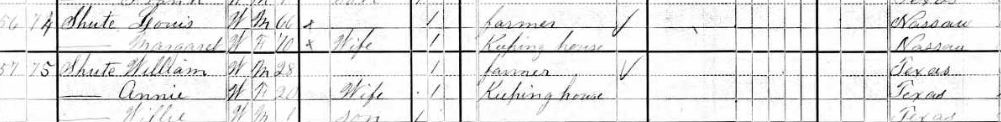 56 74 Shute Louis W M 66 x 1 farmer ✓ Nassau
— Margaret W F 70 x Wife 1 Keeping house Nassau
57 75 Shute William W M 28 1 farmer ✓ Texas
— Annie W F 20 Wife 1 Keeping house Texas
— Willie W M 1 son 1 Texas